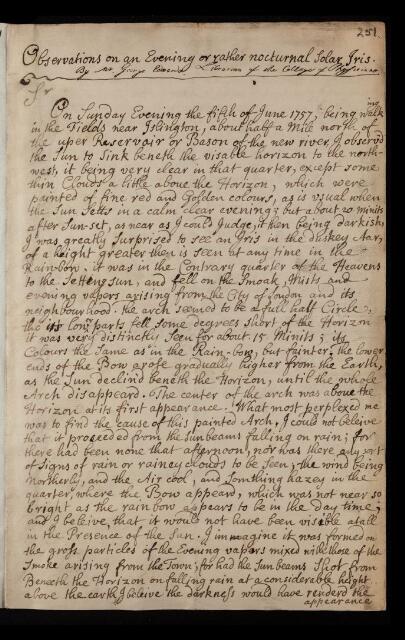 251
Observations on an Evening or rather nocturnal Solar Iris.
By Mr. George Edwards Librarian of the College of Physicians
Sr
On Sunday Evening the fifth of June 1757, being walk
ing
in the Fields near Islington, about half a Mile north of
the uper Reservoir or Bason of the new river I observd
the Sun to Sink beneth the visable horizon to the north-
west, it being very clear in that quarter, exept some
thin Clouds a little above the Horizon, which were
painted of fine red and Golden colours, as is usual when
the Sun Setts in a calm clear evening; but about 20 minits
after Sun-set, as near as I could Judge, it then being darkish,
I was greatly Surprised to see an Iris in the duskey Aar,
of a height greater then is seen at any time in the
Rain-bow, it was in the Contrary quarter of the Heavens
to the Setteng Sun, and fell on the Smoak, Mists and
evening vapers arising from the City of London and its
neighbourhood. the arch seemed to be a full half Circle,
tho' its low parts fell some degrees short of the Horizon
it was very distinctly Seen for about 15 Minits; its
Colours the Same as in the Rain-bow, but fainter. the lower
ends of the Bow arose gradually higher from the Earth,
as the Sun declind beneth the Horizon, until the whole
Arch disappeard. The center of the arch was above the
Horizon at its first appearance. What most perplexed me
was to find the cause of this painted Arch, I could not beleive
that it proceeded from the Sunbeams falling on rain; for
there had been none that afternoon, nor was there any sort
of Signs of rain or rainey clouds to be Seen, the wind being
northerly, and the Air cool, and Somthing hazey in the
quarter, where the Bow appeard, which was not near so
bright as the rainbow appears to be in the Day time;
and I beleive, that it would not have been visible atall
in the Presence of the Sun. I immagine it was formed on
the gross particles of the Evening vapers mixed with those of the
Smoke arising from the Town; for had the Sun beams Shot from
Beneeth the Horizon on falling rain at a considerable height
above the earth, I beleive the darkness would have renderd the
appearance